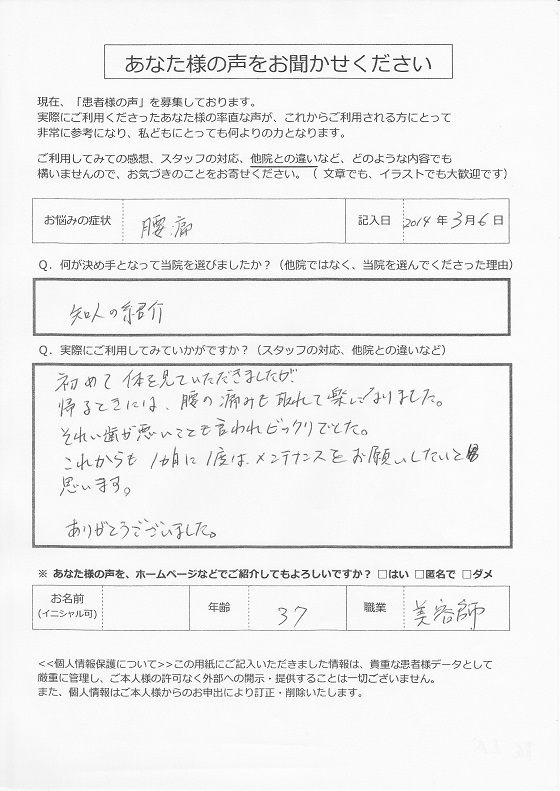 あなた様の声をお聞かせください
現在、「患者様の声」を募集しております。
実際にご利用くださったあなた様の率直な声が、これからご利用される方にとって
非常に参考になり、私どもにとっても何よりの力となります。
ご利用してみての感想、スタッフの対応、他院との違いなど、どのような内容でも
構いませんので、お気づきのことをお寄せください。（ 文章でも、イラストでも大歓迎です）
お悩みの症状 腰痛 記入日 2014 年 3 月 6 日
Q．何が決め手となって当院を選びましたか？（他院ではなく、当院を選んでくださった理由）
知人の紹介
Q．実際にご利用してみていかがですか？（スタッフの対応、他院との違いなど）
初めて体を見ていただきましたが
帰るときには、腰の痛みも取れて楽になりました。
それい歯が悪いことも言われビックリでした。
これからも 1カ月に1度は、メンテナンスをお願いしたいと
思います。
ありがとうございました。
※ あなた様の声を、ホームページなどでご紹介してもよろしいですか？ □はい □匿名で □ダメ
お名前 年齢 37 職業 美容師
(イニシャル可)
<<個人情報保護について>>この用紙にご記入いただきました情報は、貴重な患者様データとして
厳重に管理し、ご本人様の許可なく外部への開示・提供することは一切ございません。
また、個人情報はご本人様からのお申出により訂正・削除いたします。